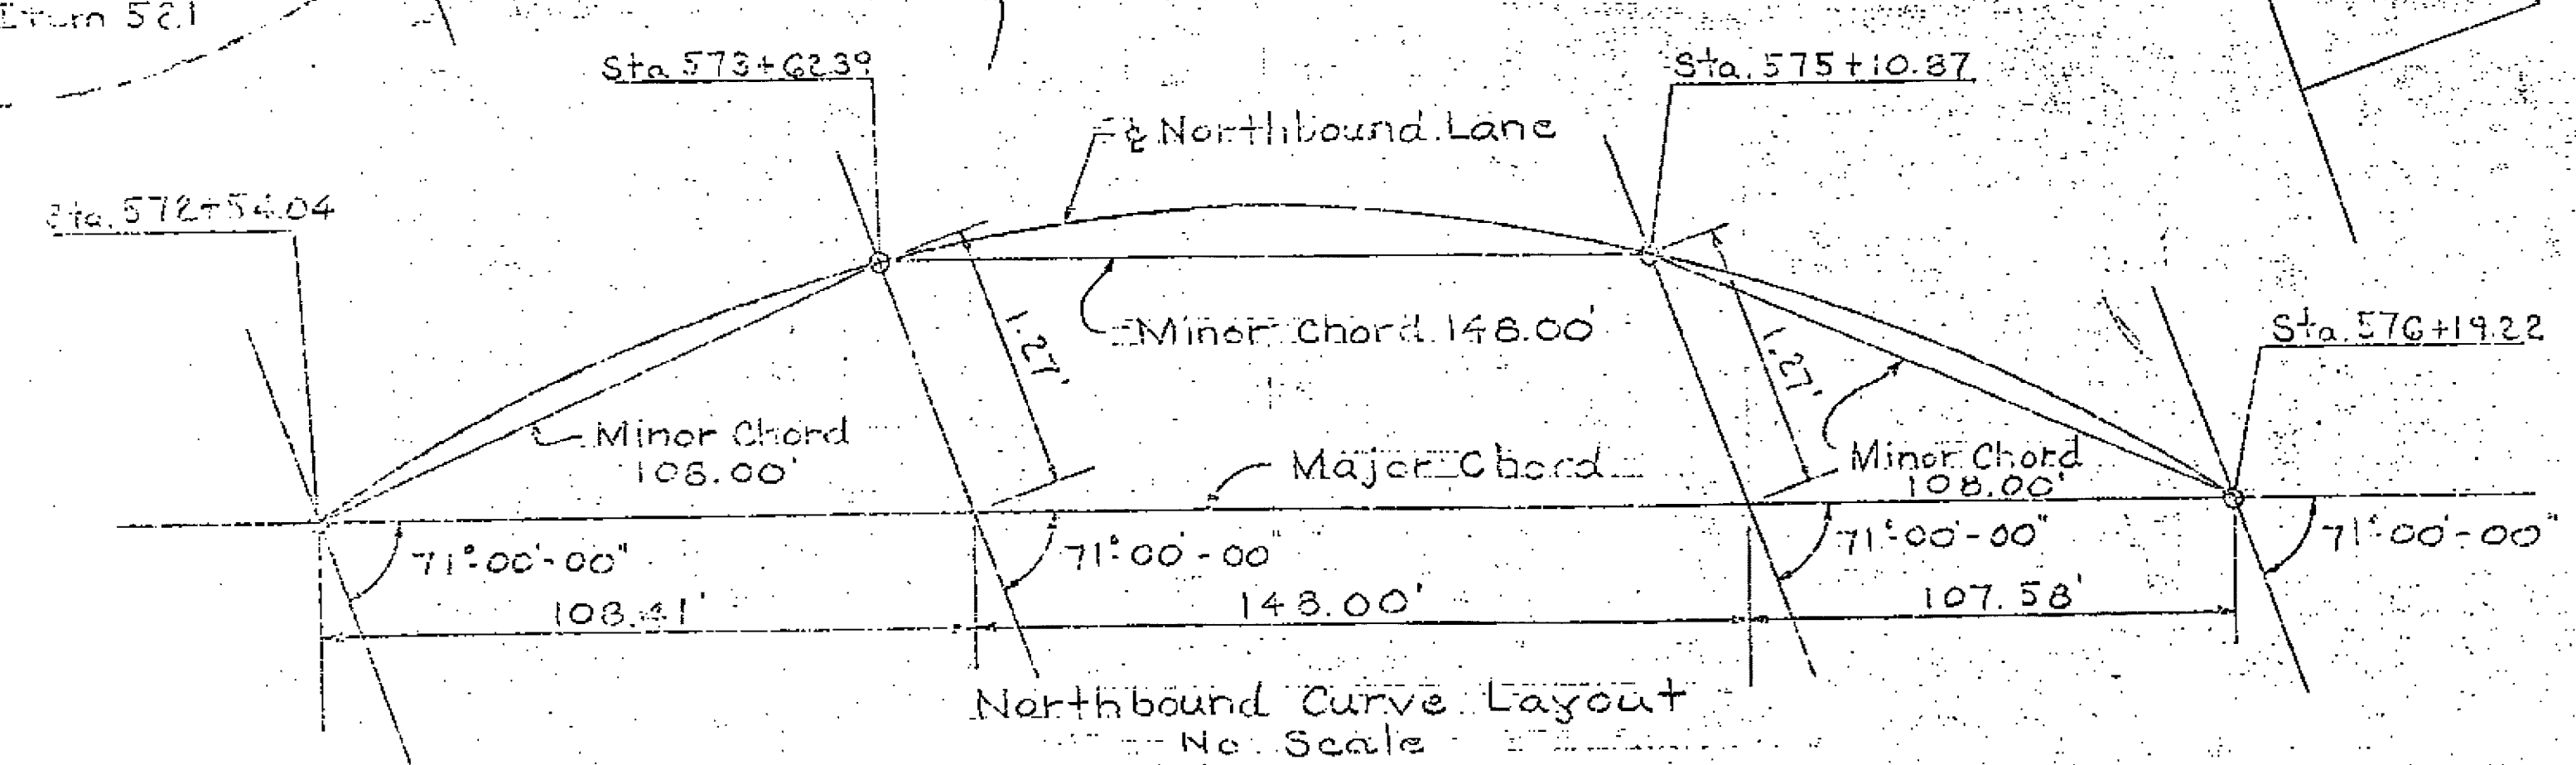 Item 521
Sta 573+62.39
Sta. 575+10.87
℄ Northbound Lane
Sta. 572+54.04
1.27'
Minor Chord 148.00'
1.27'
Sta. 576+19.22
Minor Chord
108.00'
Major Chord
Minor Chord
108.00'
71°-00'-00"
71°-00'-00"
71°-00'-00"
71°-00'-00"
108.41'
148.00'
107.58'
Northbound Curve Layout
No Scale